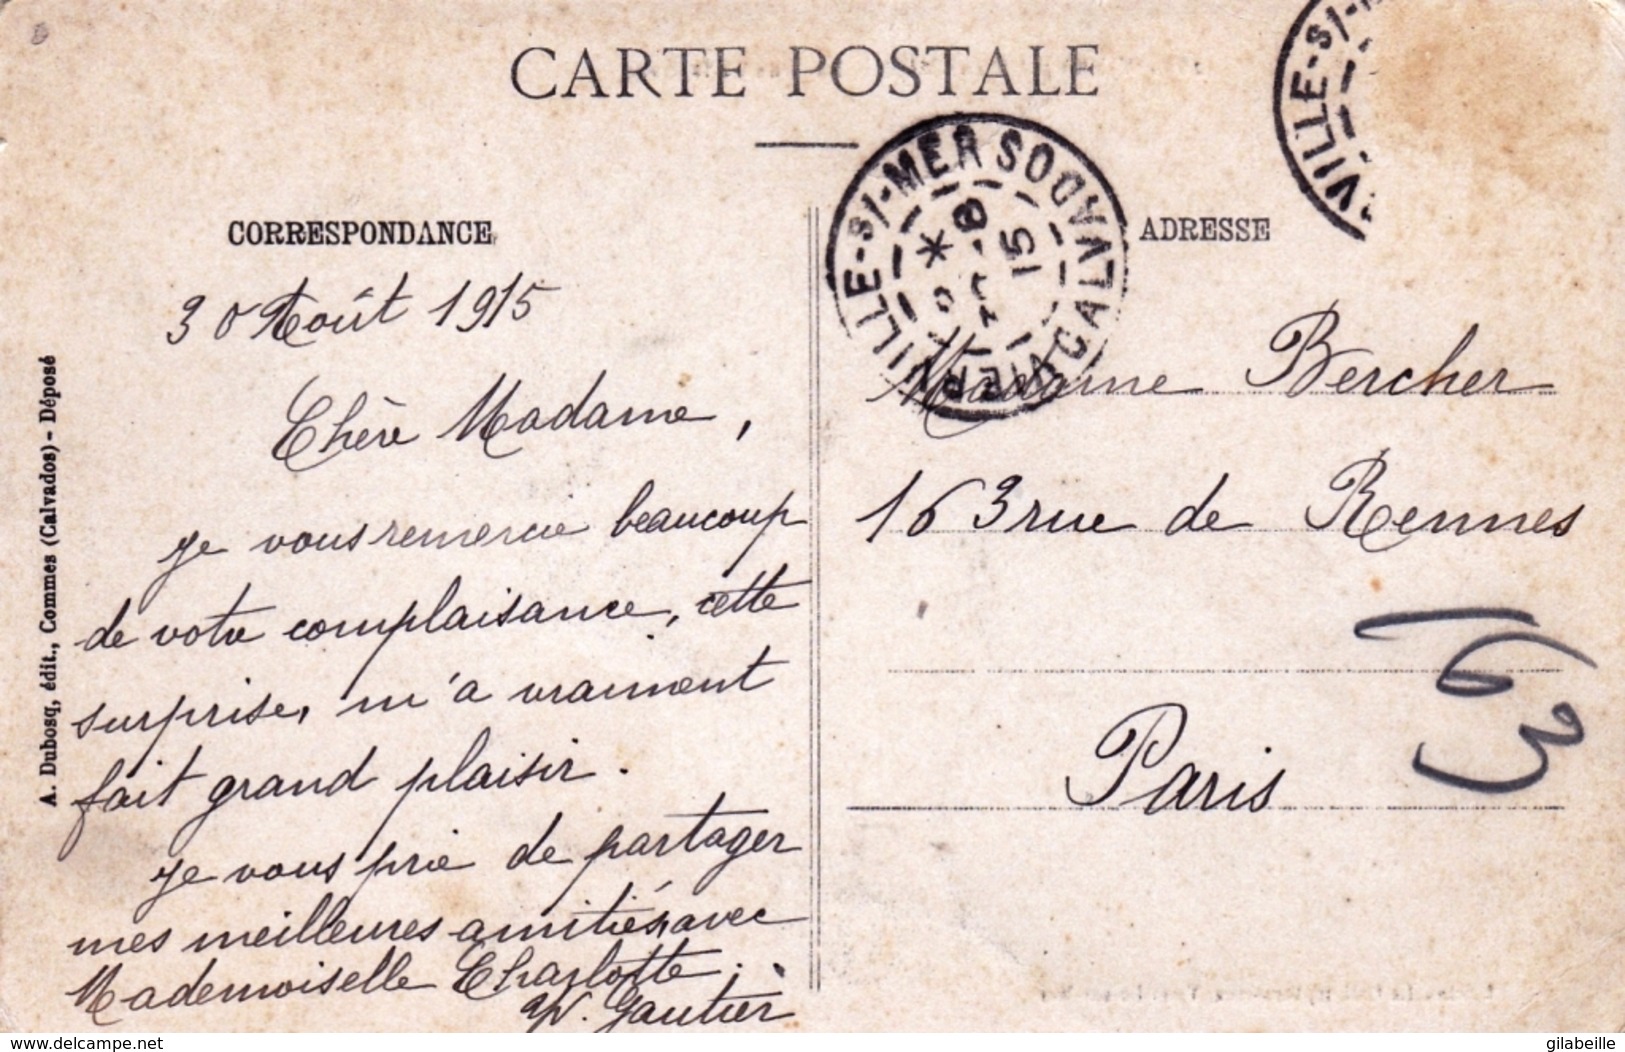 CARTE POSTALE
CORRESPONDANCE
ADRESSE
30 Août 1915
Chère Madame,
je vous remercie beaucoup
de votre complaisance, cette
surprise, m'a vraiment
fait grand plaisir.
je vous prie de partager
mes meilleures amitiés, avec
Mademoiselle Charlotte.
Gautier
Madame Bercher
163 rue de Rennes
Paris
163
A. Dubosq, édit., Commes (Calvados) - Déposé
VILLE-S/-MER CALVADOS
15
VILLE-S/-M
delcampe.net
gilabeille